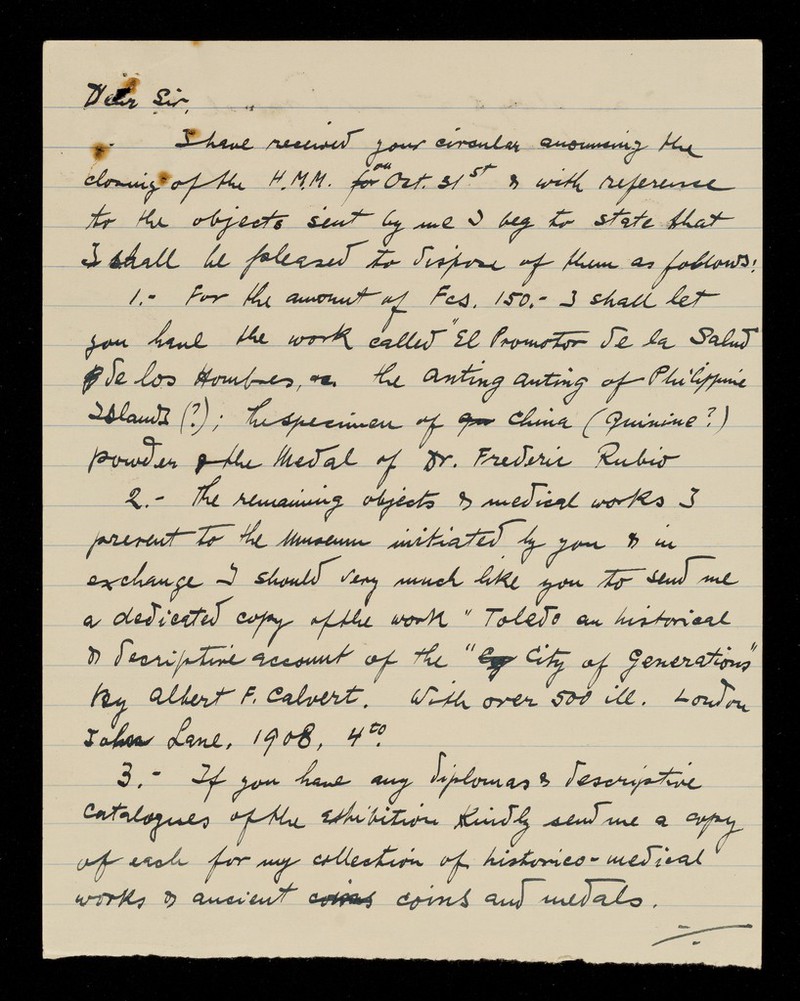 Dear Sir,
I have received your circular anouncing the
closing of the H.M.M. for on Oct. 31st & with reference
to the objects sent by me I beg to state that
I shall be pleased to dispose of them as follows:
1.- For the amount of Fcs. 150.- I shall let
you have the work called "El Promotor de la Salud
de los Hombres, the anting anting of Philippine
Islands (?); the specimen of China (Quinine?)
powder & the Medal of Dr. Frederic Rubio
2.- The remaining objects & medical works I
present to the Museum initiated by you & in
exchange I should very much like you to send me
a dedicated copy of the work "Toledo an historical
& decriptive account of the "City of Generations"
by Albert F. Calvert. With over 500 ill. London
John Lane, 1908, 4to.
3.- If you have any diplomas & descriptive
catalogues of the exhibition Kindly send me a copy
of each for my collection of historico-medical
works & ancient coins coins and medals.